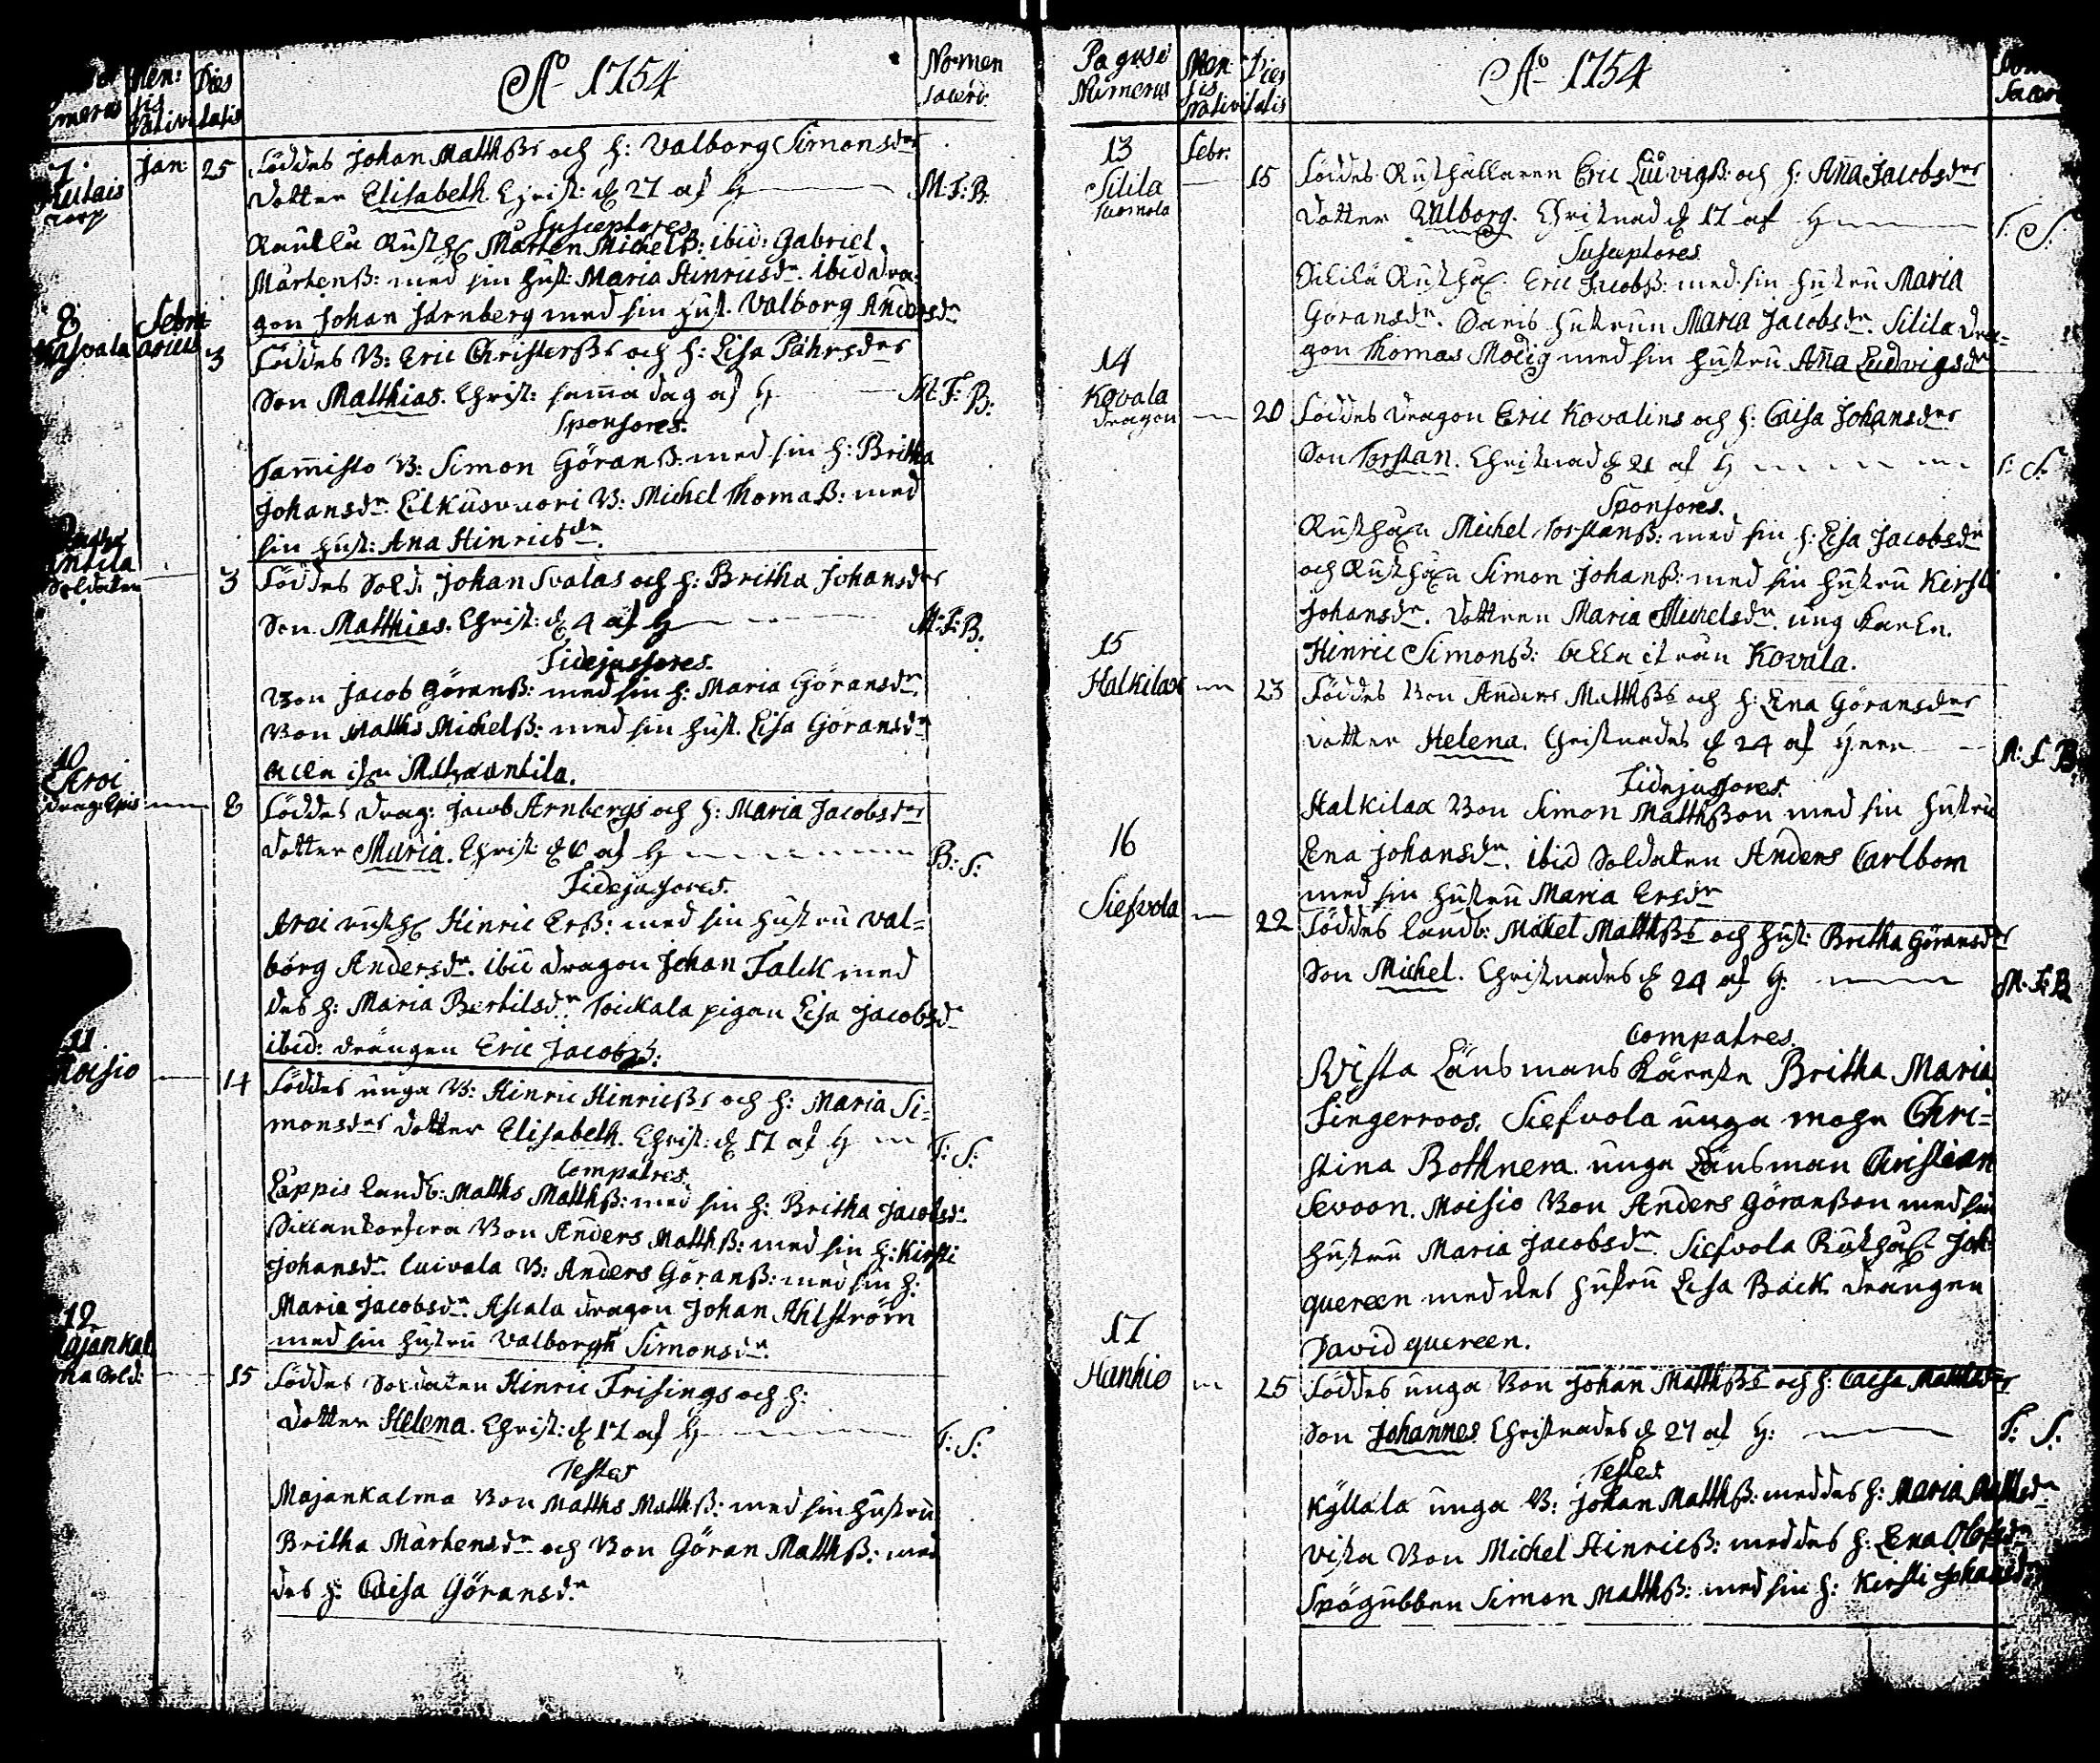 Men: Dies Aº 1754 Nomen
meras sis Sacerd.
Nativi tatis
7. Jan: 25 Föddes Johan Matthßs och h: Valborg Simonsdrs
torp dotter Elisabeth. Christ: d 27 af H M: F: B.
Susceptores
Mårten Michelß: ibid: Gabriel
Mårtenß: med sin hust: Maria Hinricsdr. ibid dra-
gon Johan Järnberg med sin hust. Valborg Andersdr
8 Febru
arius 3 Föddes B: Eric Christerßs och h: Lisa Påhrsdrs
Son Matthias. Christ: samma dag af H M: F: B:
Sponsores.
Tamisto B: Simon Göranß: med sin h: Britha
Johansdr. Lilkusvuori B: Michel Thomaß: med
sin hust: Ana Hinricsdr.
Soldaten 3 Föddes Sold. Johan Svalas och h: Britha Johansdrs
Son Matthias. Christ: d 4 af H M: F: B.
Fidejussores.
Bon Jacob Göranß: med sin h: Maria Göransdr.
Bon Matths Michelß: med sin hust. Lisa Göransdr
10
Aroi
drag: 8 Föddes drag: Jacob Arnbergs och h: Maria Jacobsdrs
dotter Maria. Christ: d af H B: S:
Fidejussores.
Aroi rusth Hinric Erß: med sin hustru Val-
borg Andersdr. ibid dragon Johan Falck med
des h: Maria Bertilsdr. Toickala pigan Lisa Jacobsdr
ibid: drängen Eric Jacobß:
11
14 Föddes unga B: Hinric Hinricßs och h: Maria Si-
monsdrs dotter Elisabeth. Christ: d 17 af H F: S:
Compatres.
Lappis landb: Matths Matthß: med sin h: Britha Jacobsdr.
Bon Anders Matthß: med sin h: Kirsti
Johansdr. Cuivala B: Anders Göranß: med sin h:
Maria Jacobsdr. Ascala dragon Johan Ahlström
med sin hustru Valborgh Simonsdr.
12
15 Föddes Soldaten Hinric Frisings och h:
dotter Helena. Christ: d 17 af H F: S:
Testes
Majankalma Bon Matths Matthß: med sin hustru
Britha Mårtensdr och Bon Göran Matthß: med
des h: Caisa Göransdr.
Pagus & Men Dies Aº 1754
Numerus sis
Nativi tatis
13 Febr.
Silila 15 Föddes Rusthållaren Eric Ludvigß: och h: Aña Jacobsdrs
dotter Valborg. Christnad d 17 af H F: S:
Susceptores
Silila Rusth. Eric Jacobß: med sin hustru Maria
Göransdr. hustrun Maria Jacobsdr. Silila dra-
gon Thomas Modig med sin hustru Aña Ludvigsdr
14
Kovala
dragon 20 Föddes dragon Eric Kovalins och h: Caisa Johansdrs
Son Torstan. Christnad d 21 af H F: S:
Sponsores.
Michel Torstanß: med sin h: Lisa Jacobsdr
och Simon Johanß: med sin hustru Kirsti
Johansdr. dottren Maria Michelsdr. ung karlen
Hinric Simonß: alla ifrån Kovala.
15
Halkilax 23 Föddes Bon Anders Matthßs och h: Lena Göransdrs
dotter Helena. Christnades d 24 af Herr M: F: B.
Fidejussores
Halkilax Bon Simon Matthßon med sin hustru
Lena Johansdr. ibid Soldaten Anders Carlbom
med sin hustru Maria Ersdr
16
Siefvola 22 Föddes landb: Mickel Matthßs och hust: Britha Göransdrs
Son Michel. Christnades d 24 af H: M: F: B
Compatres.
Vista Länsmans Britha Maria
Fingerroos. Siefvola unga Chri-
stina Bothnera. unga Länsman Christian
Sevoon. Moisio Bon Anders Göranßon med sin
hustru Maria Jacobsdr. Siefvola Rusth. Joh
quereen med des hustru Lisa Bäck drängen
David quereen.
17
Hanhio 25 Föddes unga Bon Johan Matthßs och h: Caisa Matthsdrs
Son Johannes. Christnades d 27 af H: F: S:
Testes.
Kyllala unga B: Johan Matthß: med des h: Maria Matthsdr.
Vista Bon Michel Hinricß: med des h: Lena Olofsdr
Spögubben Simon Matthß: med sin h: Kirsti Johansdr